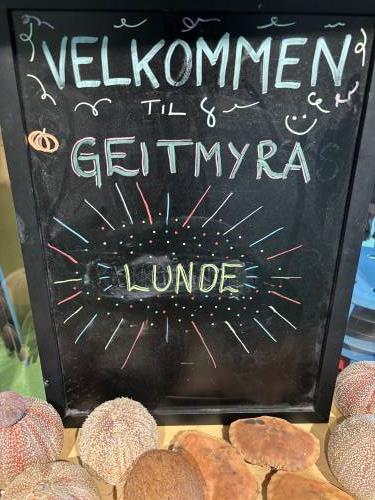 VELKOMMEN
TIL
GEITMYRA
LUNDE